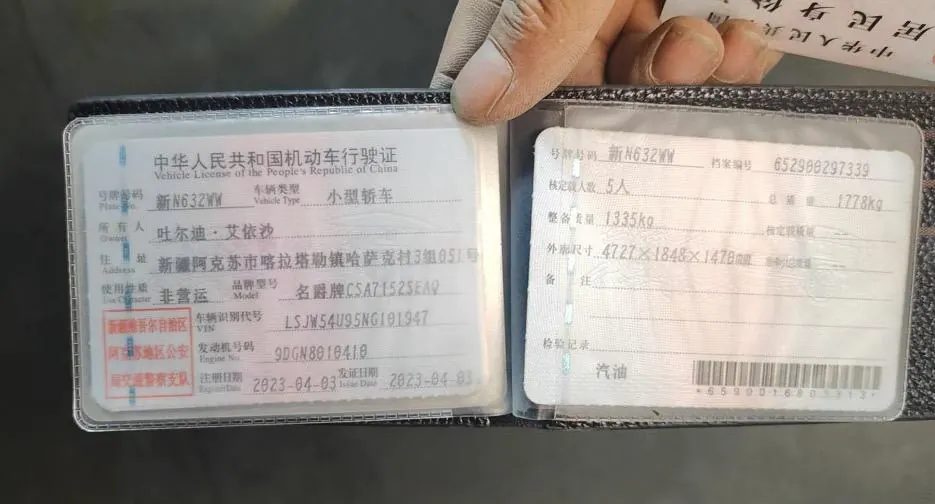 中华人民共和国机动车行驶证
Vehicle License of the People's Republic of China
号牌号码 新N632WW 车辆类型 小型轿车
Plate No. Vehicle Type
所有人 吐尔迪·艾依沙
Owner
住址 新疆阿克苏市喀拉塔勒镇哈萨克村3组051号
Address
使用性质 非营运 品牌型号 名爵牌CSA7152SEAQ
Use Character Model
新疆维吾尔自治区
阿克苏地区公安
局交通警察支队
车辆识别代号 LSJW54U95NG101947
VIN
发动机号码 9DGN8010410
Engine No.
注册日期 2023-04-03 发证日期 2023-04-03
Register Date Issue Date
号牌号码 新N632WW 档案编号 652900297339
核定载人数 5人 总质量 1778kg
整备质量 1335kg 核定载质量 --
外廓尺寸 4727×1848×1470mm --
备注
检验记录
汽油
中华人民共和国
居民身份